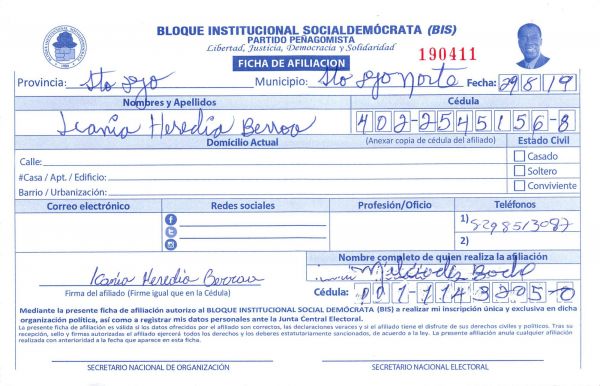 BLOQUE INSTITUCIONAL SOCIALDEMÓCRATA (BIS)
PARTIDO PEÑAGOMISTA
Libertad, Justicia, Democracia y Solidaridad
FICHA DE AFILIACION
190411
Provincia: Sto Dgo Municipio: Sto Dgo Norte Fecha: 29 8 19
Nombres y Apellidos Cédula
Icania Heredia Berroa 402-2545156-8
Domicilio Actual (Anexar copia de cédula del afiliado) Estado Civil
Calle: Casado
#Casa / Apt. / Edificio: Soltero
Barrio / Urbanización: Conviviente
Correo electrónico Redes sociales Profesión/Oficio Teléfonos
1) 8298513087
2)
Nombre completo de quien realiza la afiliación
Icania Heredia Berroa
Firma del afiliado (Firme igual que en la Cédula) Cédula: 001-1143205-0
Mediante la presente ficha de afiliación autorizo al BLOQUE INSTITUCIONAL SOCIAL DEMÓCRATA (BIS) a realizar mi inscripción única y exclusiva en dicha
organización política, así como a registrar mis datos personales ante la Junta Central Electoral.
La presente ficha de afiliación es válida si los datos ofrecidos por el afiliado son correctos, las declaraciones veraces y si el afiliado tiene el disfrute de sus derechos civiles y políticos. Tras su
recepción, sello y firmas autorizadas el afiliado ejercerá todos los derechos y los deberes estatutariamente sancionados, de acuerdo a la ley. La presente afiliación anula cualquier afiliación
realizada con anterioridad a la fecha que aparece en esta ficha.
SECRETARIO NACIONAL DE ORGANIZACIÓN SECRETARIO NACIONAL ELECTORAL